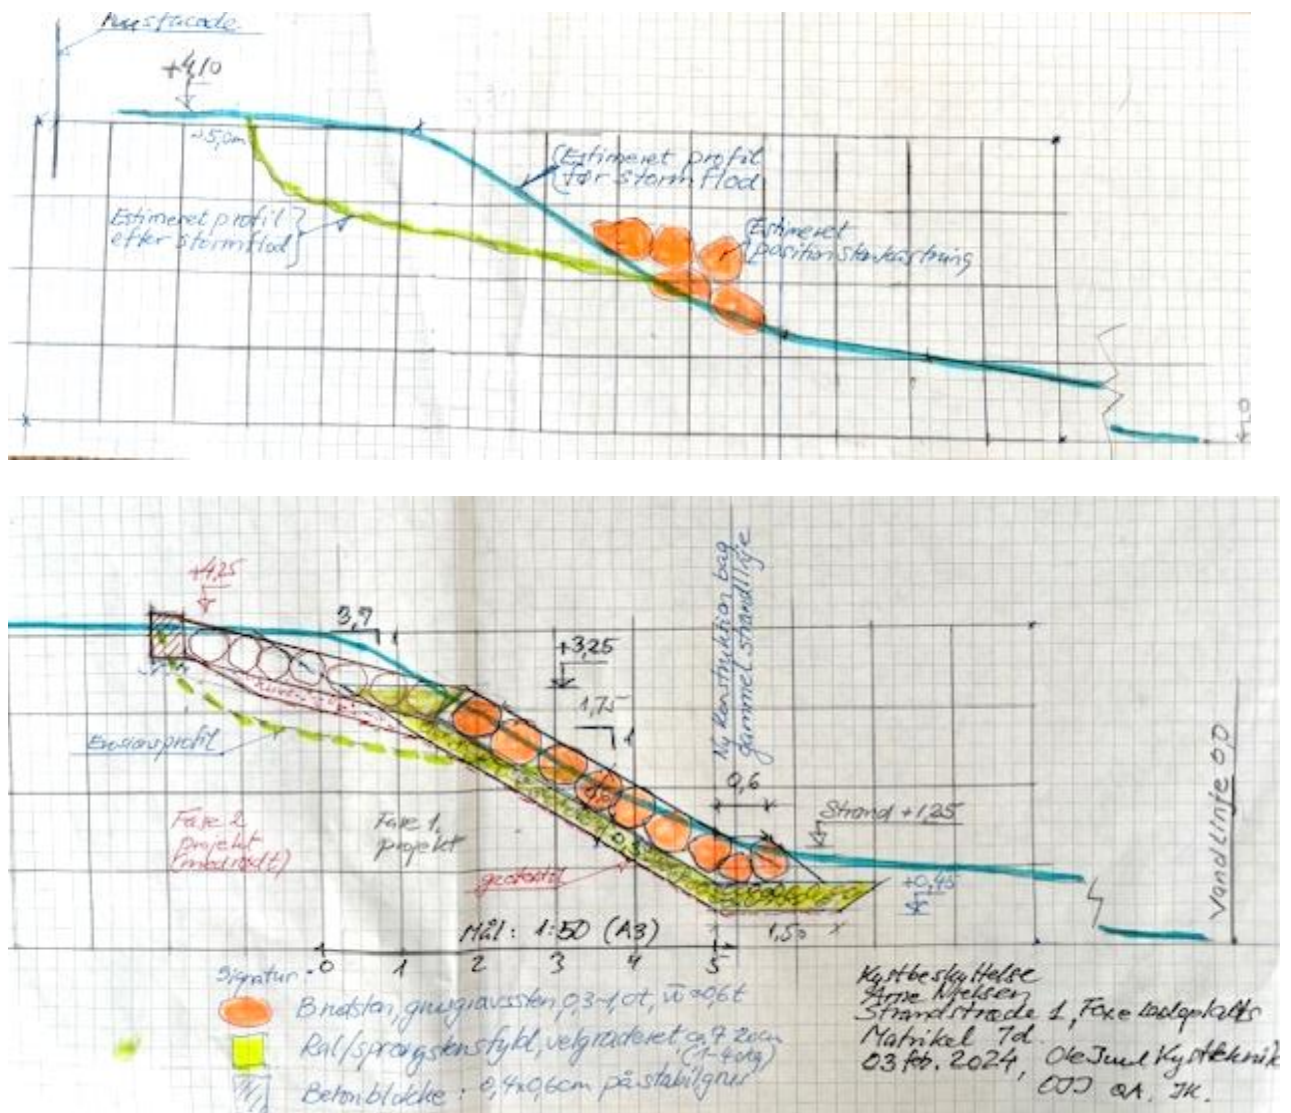 +4,10
~5,0m
Estimeret profil
før stormflod
Estimeret profil
efter stormflod
Estimeret
position stenkastning
+4,25
3,7
1
+3,25
1,75
1
Ny konstruktion bag
gammel strandlinje
0,6
Strand +1,25
Erosionsprofil
Fase 2
projekt
(med rødt)
Fase 1,
projekt
geotextil
+0,45
Vandlinje 0,0
Mål: 1:50 (A3)
1,50
0 1 2 3 4 5
Signatur:
Brudsten, grusgravssten, 0,3-1,0t, w ≈0,6t
Ral/sprængstensfyld, velgraderet ca 7-20cm
(1-40kg)
Betonblokke: 0,4x0,6cm på stabilgrus
Kystbeskyttelse
Arne Nielsen
Strandstræde 1, Faxe Ladeplads
Matrikel 7d
03 feb. 2024, Ole Juul Kystteknik
OJJ QA. JK.